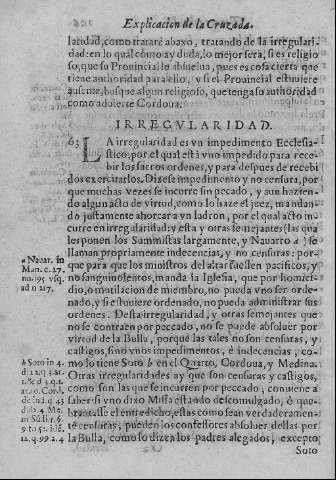 Explicacion de la Cruzada.
laridad, como tratarè abaxo, tratando de la irregulari-
dad: en lo qual como ay duda, lo mejor sera, si es religio
so, que su Provincial le absuelua, pues es cosa cierta que
tiene authoridad para ello, y si el Provincial estuuiere
ausente, busque algun religioso, que tenga su authoridad
como aduierte Cordoua.
IRREGVLARIDAD.
63 LA irregularidad es vn impedimento Ecclesia-
stico, por el qual està vno impedido para rece-
bir los sacros ordenes, y para despues de recebi
dos exercitarlos. Dizese impedimento y no censura, por
que muchas vezes se incurre sin pecado, y aun hazien-
do algun acto de virtud, como lo haze el juez, mandan-
do justamente ahorcar a vn ladron, por el qual acto in-
curre en irregularidad: y esta y otras semejantes (las qua
les ponen los Summistas largamente, y Nauarro a) se
llaman propriamente indecencias, y no censuras: por-
que para que los ministros del altar fuessen pacificos, y
no sanguinolentos, manda la Iglesia, que por homici-
dio, o mutilacion de miembro, no pueda vno ser orde-
nado, y si estuuiere ordenado, no pueda administrar sus
ordenes. Desta irregularidad, y otras semejantes que
no se contraen por peccado, no se puede absoluer por
virtud de la Bulla, porque las tales no son censuras, y
castigos, sino vnos impedimentos, è indecencias, co-
mo lo tiene Soto b en el Quarto, Cordoua, y Medina.
Otras irregularidades ay que son censuras y castigos,
como son las que se incurren por peccado, conuiene a
saber si vno dixo Missa estando descomulgado, ò que-
brantasse el entredicho, estas como sean verdaderamen-
te censuras, pueden los confessores absoluer dellas por
la Bulla, como lo dizen los padres alegados, excepto
Soto
a Nauar. in
Man. c. 27.
nu. 195. vsq.
ad n 217.
b Soto in 4